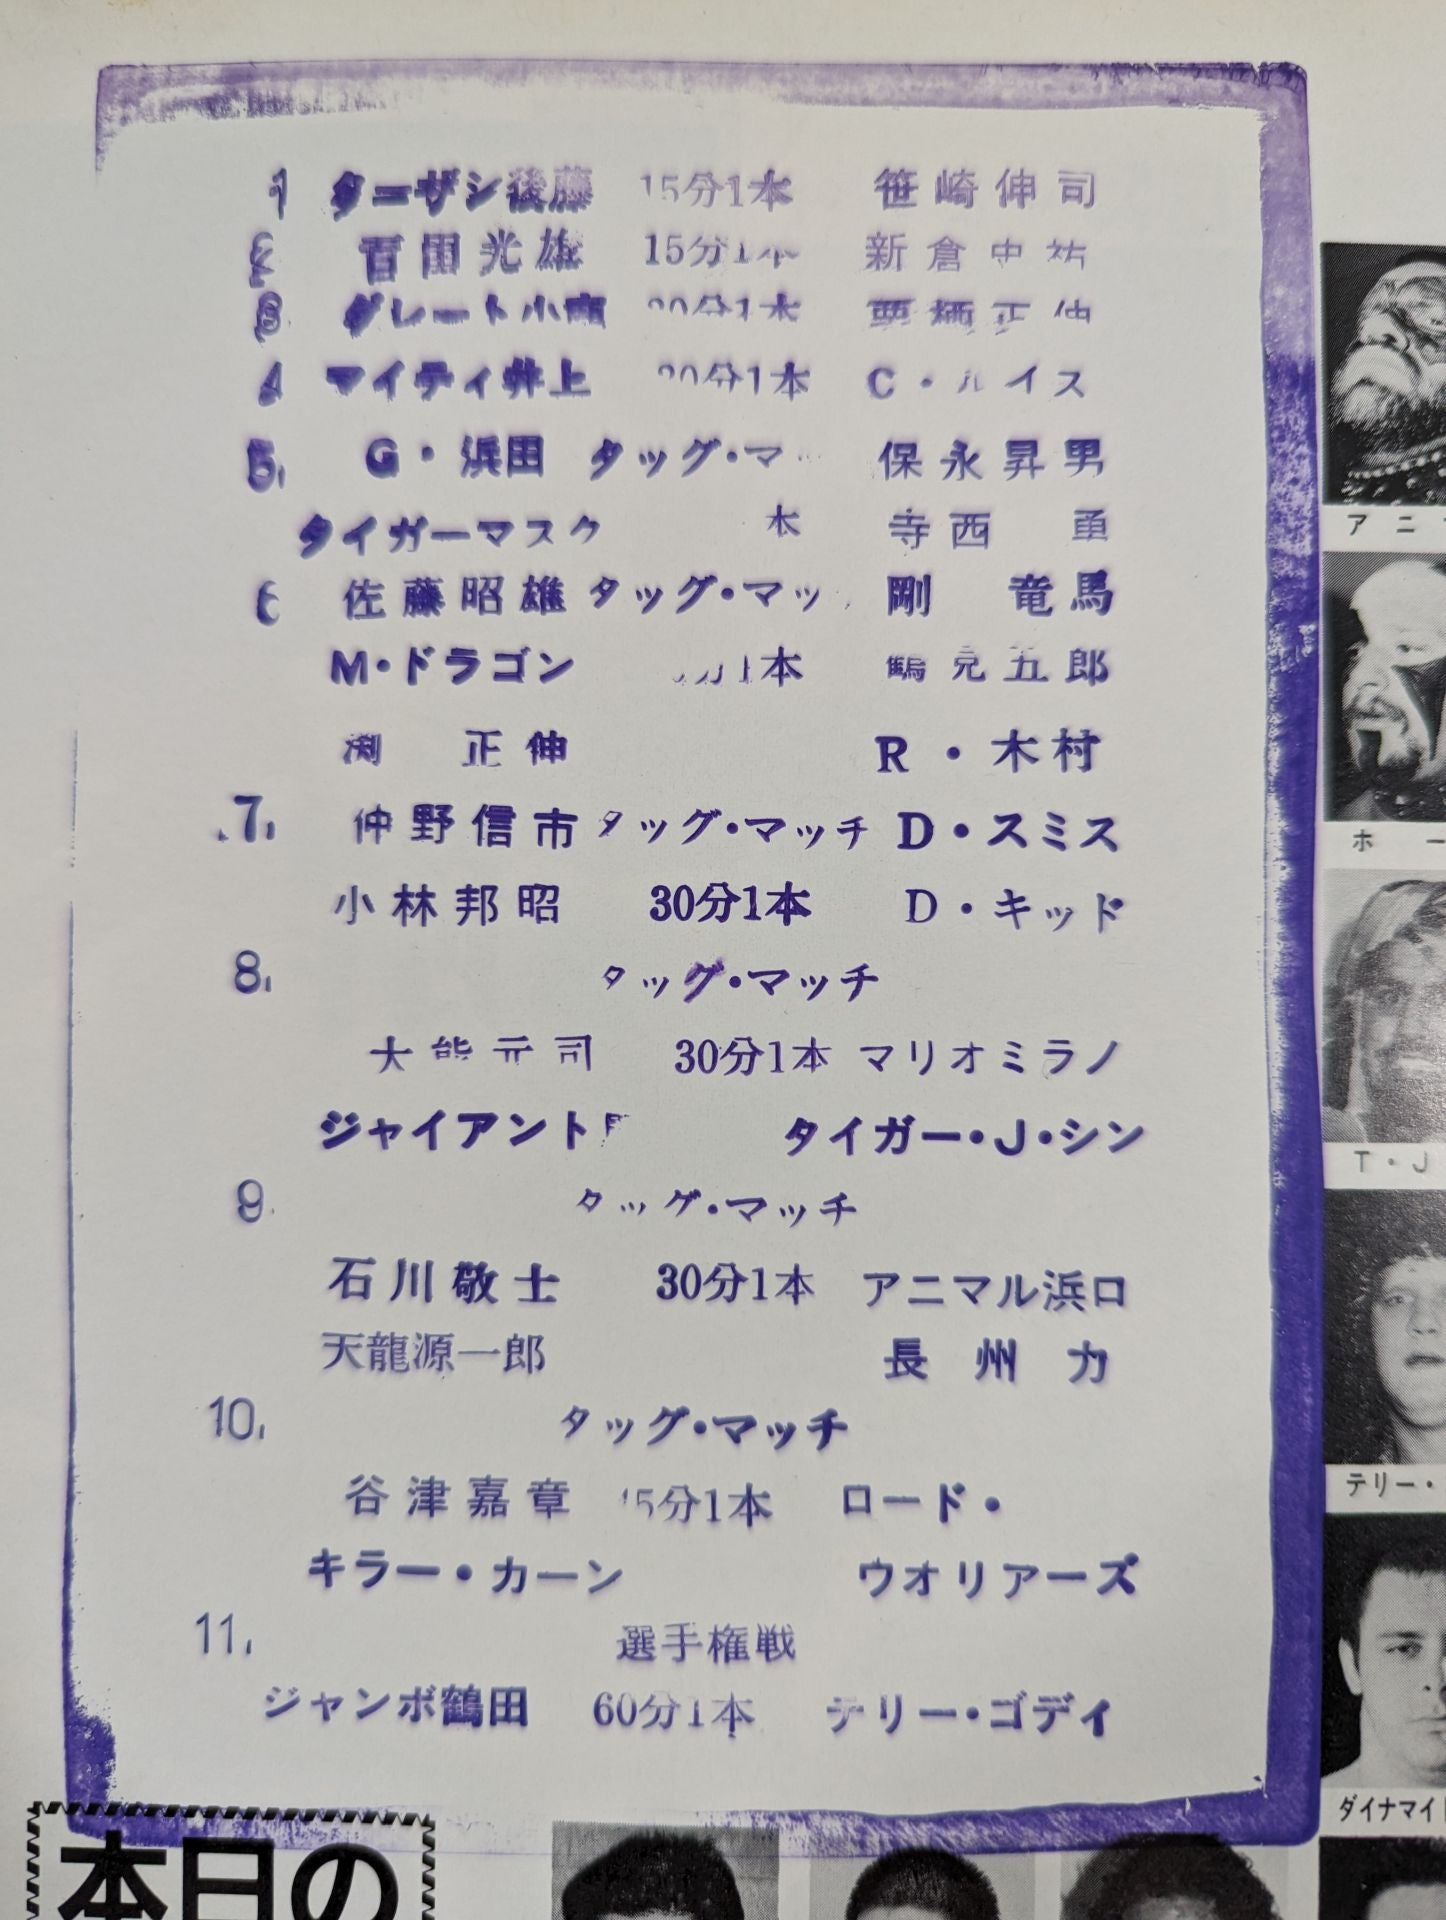 1 ターザン後藤 15分1本 笹崎伸司
2 百田光雄 15分1本 新倉史祐
3 グレート小鹿 20分1本 栗栖正伸
4 マイティ井上 20分1本 C・ルイス
5. G・浜田 タッグ・マ 保永昇男
タイガーマスク 本 寺西 勇
6 佐藤昭雄 タッグ・マッ 剛 竜馬
M・ドラゴン 分1本 鶴見五郎
渕 正伸 R・木村
7. 仲野信市 タッグ・マッチ D・スミス
小林邦昭 30分1本 D・キッド
8. タッグ・マッチ
大熊元司 30分1本 マリオミラノ
ジャイアント タイガー・J・シン
9. タッグ・マッチ
石川敬士 30分1本 アニマル浜口
天龍源一郎 長 州 力
10. タッグ・マッチ
谷津嘉章 45分1本 ロード・
キラー・カーン ウオリアーズ
11. 選手権戦
ジャンボ鶴田 60分1本 テリー・ゴディ
本日の
アニ
ホー
T・J
テリー・
ダイナマイ